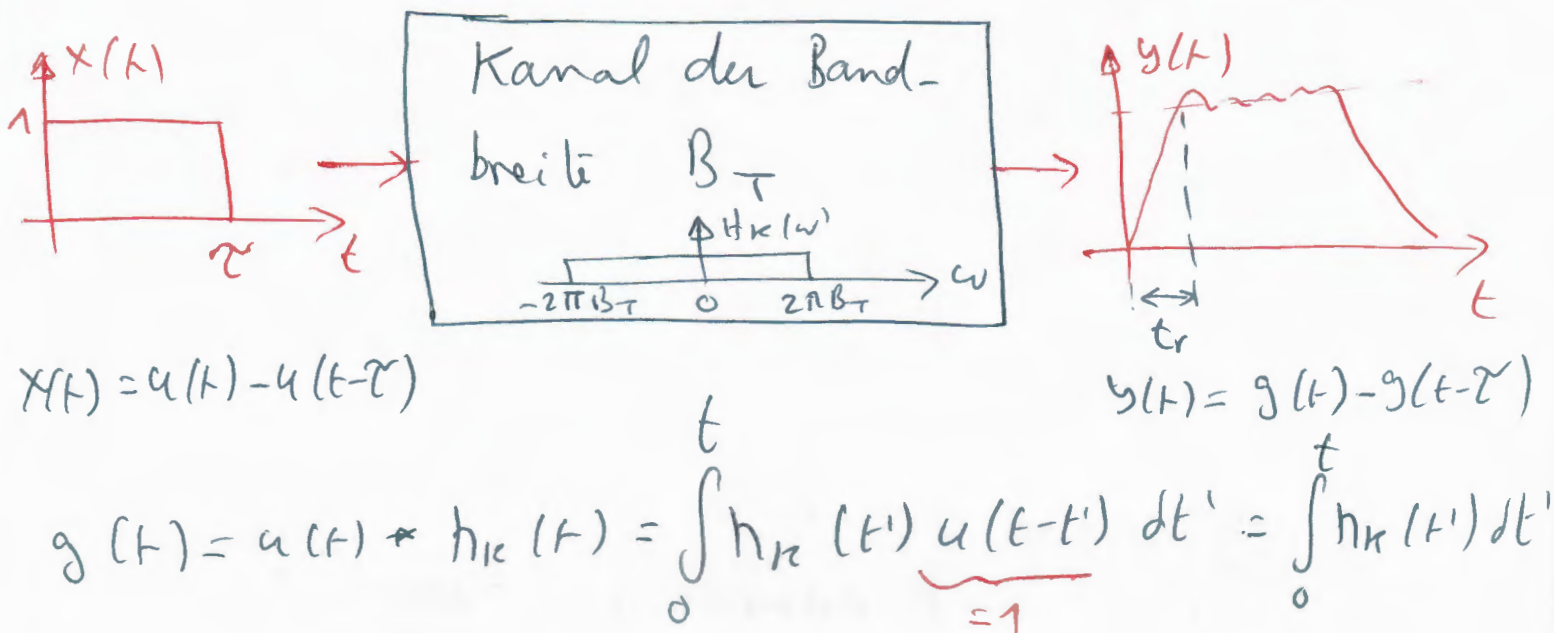 x(t)
1
τ
t
Kanal der Band-
breite B_T
H_K(ω)
-2πB_T 0 2πB_T
ω
y(t)
t_r
t
x(t) = u(t) - u(t-τ)
y(t) = g(t) - g(t-τ)
g(t) = u(t) * h_K(t) = ∫_0^t h_K(t') u(t-t') dt' = ∫_0^t h_K(t') dt'
=1